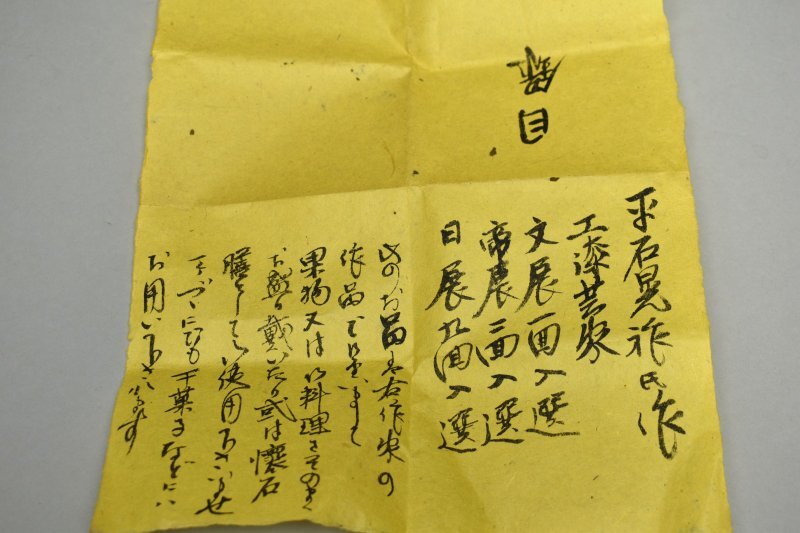 目録
平石晃祥氏作
工漆芸家
文展一回入選
帝展二回入選
日展九回入選
此のお品は右作家の
作品で御座いまして
果物又は御料理をそのまゝ
お盛り戴いたり或は懐石
膳としても使用下さいませ
にも干菓子などに
お用い下さいませ